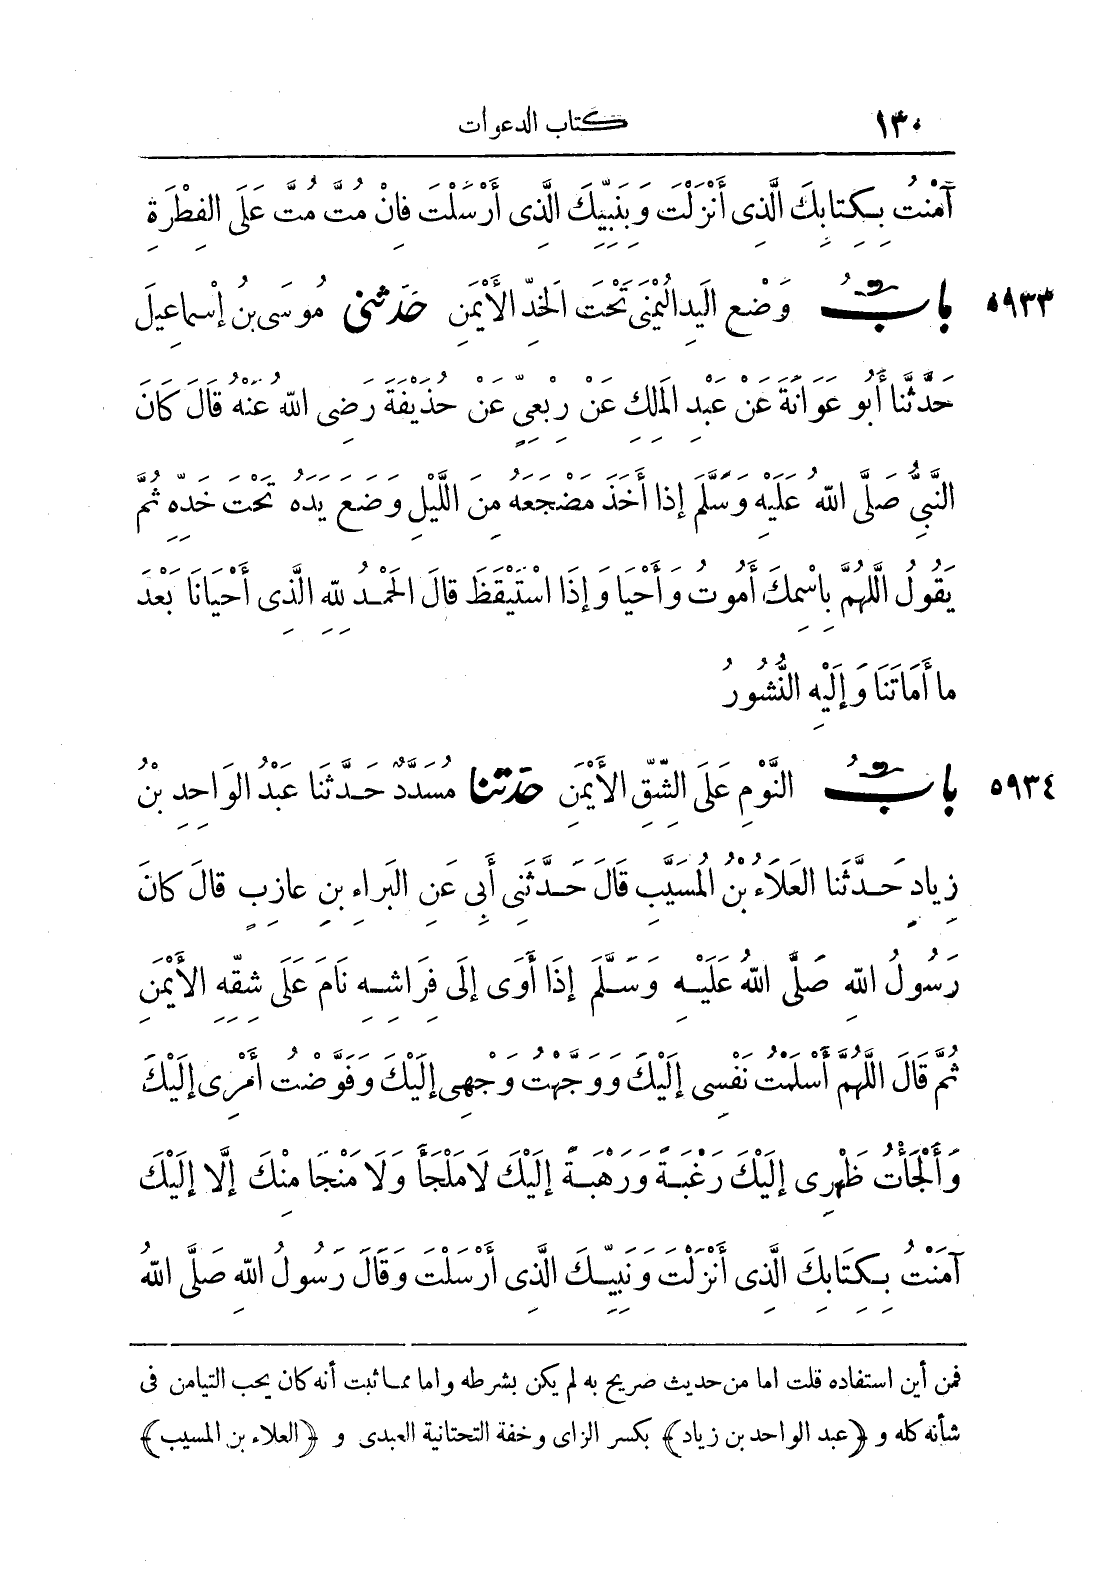 ١٣٠ كتاب الدعوات
آمَنْتُ بِكِتابِكَ الَّذِى أَنْزَلْتَ وَبِنَبِيِّكَ الَّذِى أَرْسَلْتَ فانْ مُتَّ مُتَّ عَلَى الفِطْرَةِ
٥٩٣٣ بابُ وَضْعِ اليَدِ اليُمْنَى تَحْتَ الخَدِّ الأَيْمَنِ حَدَّثَنِى مُوسَى بنُ إسْماعِيلَ
حَدَّثَنا أَبُو عَوَانَةَ عَنْ عَبْدِ المَلِكِ عَنْ رِبْعِيٍّ عَنْ حُذَيْفَةَ رَضِىَ اللهُ عَنْهُ قالَ كانَ
النَّبِيُّ صَلَّى اللهُ عَلَيْهِ وَسَلَّمَ إذا أَخَذَ مَضْجَعَهُ مِنَ اللَّيْلِ وَضَعَ يَدَهُ تَحْتَ خَدِّهِ ثُمَّ
يَقُولُ اللَّهُمَّ بِاسْمِكَ أَمُوتُ وَأَحْيَا وَإِذَا اسْتَيْقَظَ قالَ الحَمْدُ لِلّهِ الَّذِى أَحْيَانَا بَعْدَ
ما أَمَاتَنَا وَإِلَيْهِ النُّشُورُ
٥٩٣٤ بابُ النَّوْمِ عَلَى الشِّقِّ الأَيْمَنِ حَدَّثَنا مُسَدَّدٌ حَدَّثَنَا عَبْدُ الوَاحِدِ بنُ
زِيادٍ حَدَّثَنا العَلَاءُ بنُ المُسَيَّبِ قَالَ حَدَّثَنِى أَبِى عَنِ البَراءِ بنِ عازِبٍ قالَ كانَ
رَسُولُ اللهِ صَلَّى اللهُ عَلَيْهِ وَسَلَّمَ إذَا أَوَى إلَى فِرَاشِهِ نَامَ عَلَى شِقِّهِ الأَيْمَنِ
ثُمَّ قَالَ اللَّهُمَّ أَسْلَمْتُ نَفْسِى إلَيْكَ وَوَجَّهْتُ وَجْهِى إلَيْكَ وَفَوَّضْتُ أَمْرِى إلَيْكَ
وَأَلْجَأْتُ ظَهْرِى إلَيْكَ رَغْبَةً وَرَهْبَةً إلَيْكَ لَا مَلْجَأَ وَلَا مَنْجَا مِنْكَ إلَّا إلَيْكَ
آمَنْتُ بِكِتَابِكَ الَّذِى أَنْزَلْتَ وَنَبِيِّكَ الَّذِى أَرْسَلْتَ وَقَالَ رَسُولُ اللهِ صَلَّى اللهُ
فمن أين استفاده قلت اما من حديث صريح به لم يكن بشرطه واما مما ثبت أنه كان يحب التيامن فى
شأنه كله و ﴿عبد الواحد بن زياد﴾ بكسر الزاى وخفة التحتانية العبدى و ﴿العلاء بن المسيب﴾